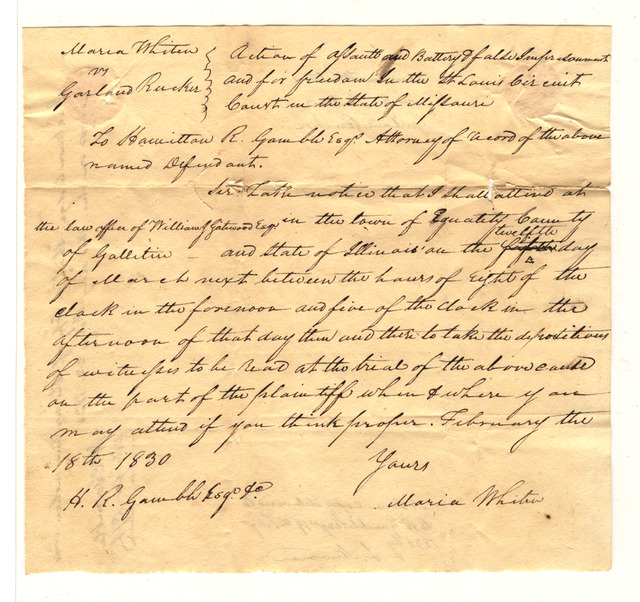 Maria Whiten
vs
Garland Rucker
Action of assault and Battery & false Imprisonment
and for freedom In the St Louis Circuit
Court in the State of Missouri
To Hamilton R. Gamble Esqr. Attorney of record of the above
named Defendant.
Sir Take notice that I shall attend at
the law office of William J Gatewood Esqr. in the town of Equality County
twelfth
of Gallatin - and State of Illinois on the day
of March next between the hours of Eight of the
clock in the forenoon and five of the clock in the
afternoon of that day then and there to take the depositions
of witnesses to be read at the trial of the above cause
on the part of the plaintiff when & where you
may attend if you think proper. February the
18th 1830
Yours
H. R. Gamble Esqr &c
Maria Whiten